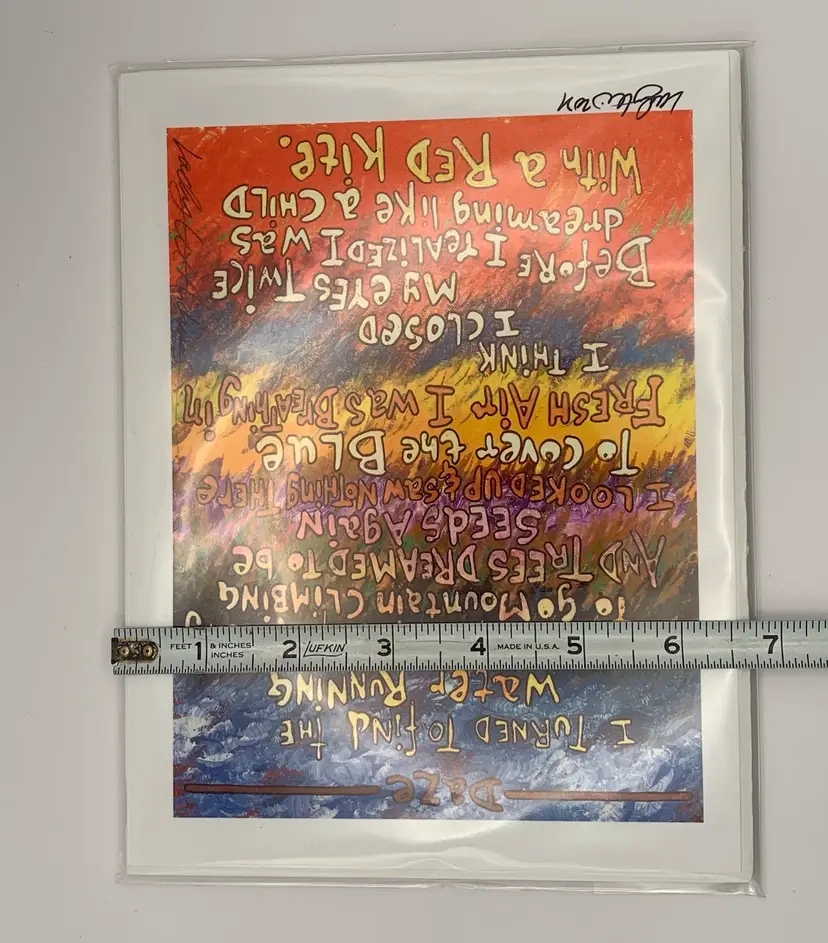 DaZe
I TURNED To find THE
WaTeR RUNNING
To go Mountain CLiMBiNG
AND TREES DREAMED To be
SEEDS AgaiN
I LOOKED UP & SAW NOTHiNg THERE
To cover the BLUe
FRESH AiR I WAS BREATHiNg iN
I THiNK
I CLOSED
My EYES TwicE
BeFoRE I REALiZED I WAS
dreaming like a CHiLD
WiTH a RED KiTe.
FEET 1 & INCHES 2 LUFKIN 3 4 MADE IN U.S.A. 5 6 7
INCHES INCHES